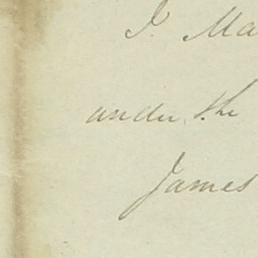 I. Ma
under the
James